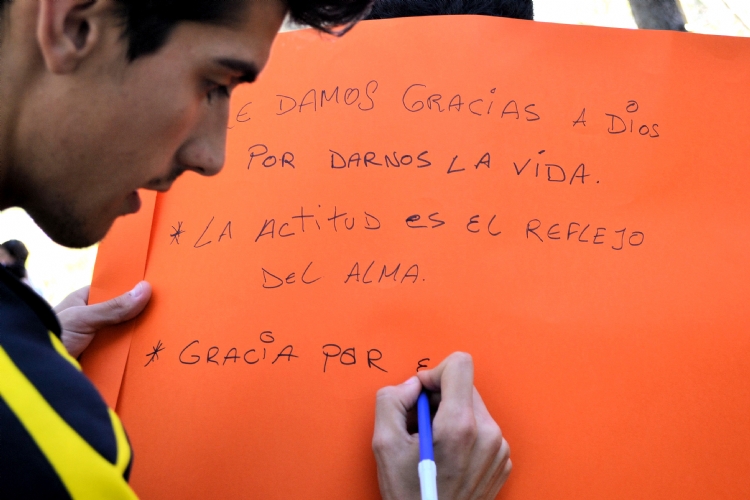 DAMOS GRACIAS A DIOS
POR DARNOS LA VIDA.
* LA ACTITUD ES EL REFLEJO
DEL ALMA.
* GRACIA POR